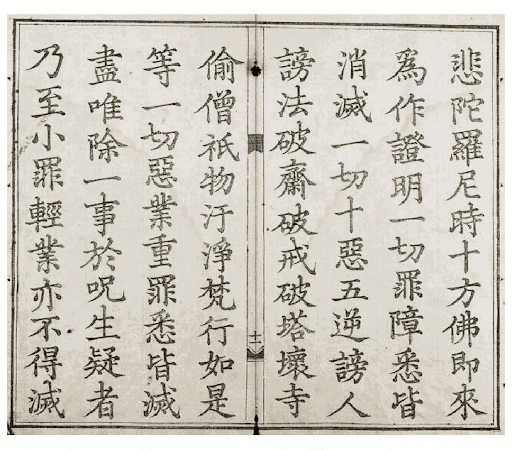 悲陀羅尼時十方佛即來
爲作證明一切罪障悉皆
消滅一切十惡五逆謗人
謗法破齋破戒破塔壞寺
十一
偷僧祇物汙淨梵行如是
等一切惡業重罪悉皆滅
盡唯除一事於呪生疑者
乃至小罪輕業亦不得滅